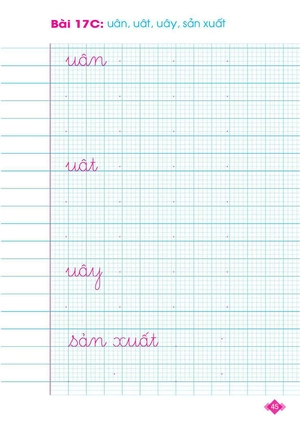 Bài 17C: uân, uât, uây, sản xuất
uân
uât
uây
sản xuất
45